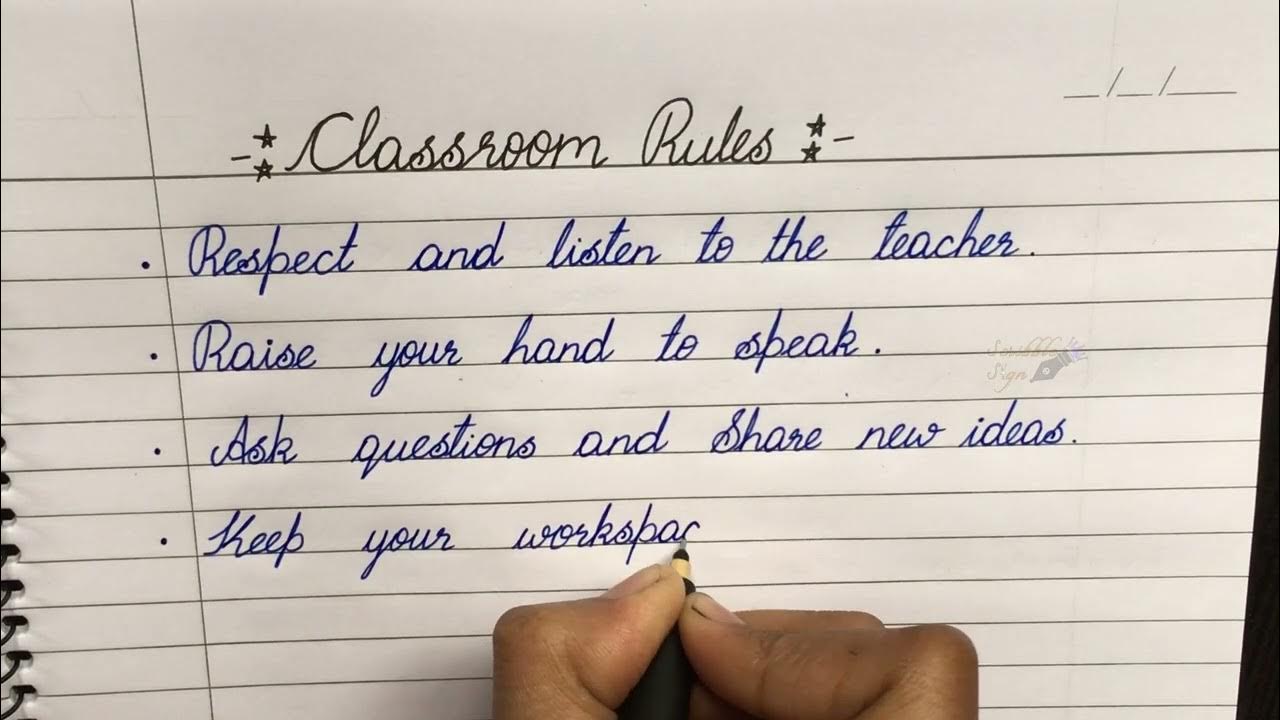 __/__/____
-⋆⋆ Classroom Rules ⋆⋆-
. Respect and listen to the teacher.
. Raise your hand to speak.
Scribble
Sign
. Ask questions and Share new ideas.
. Keep your workspac